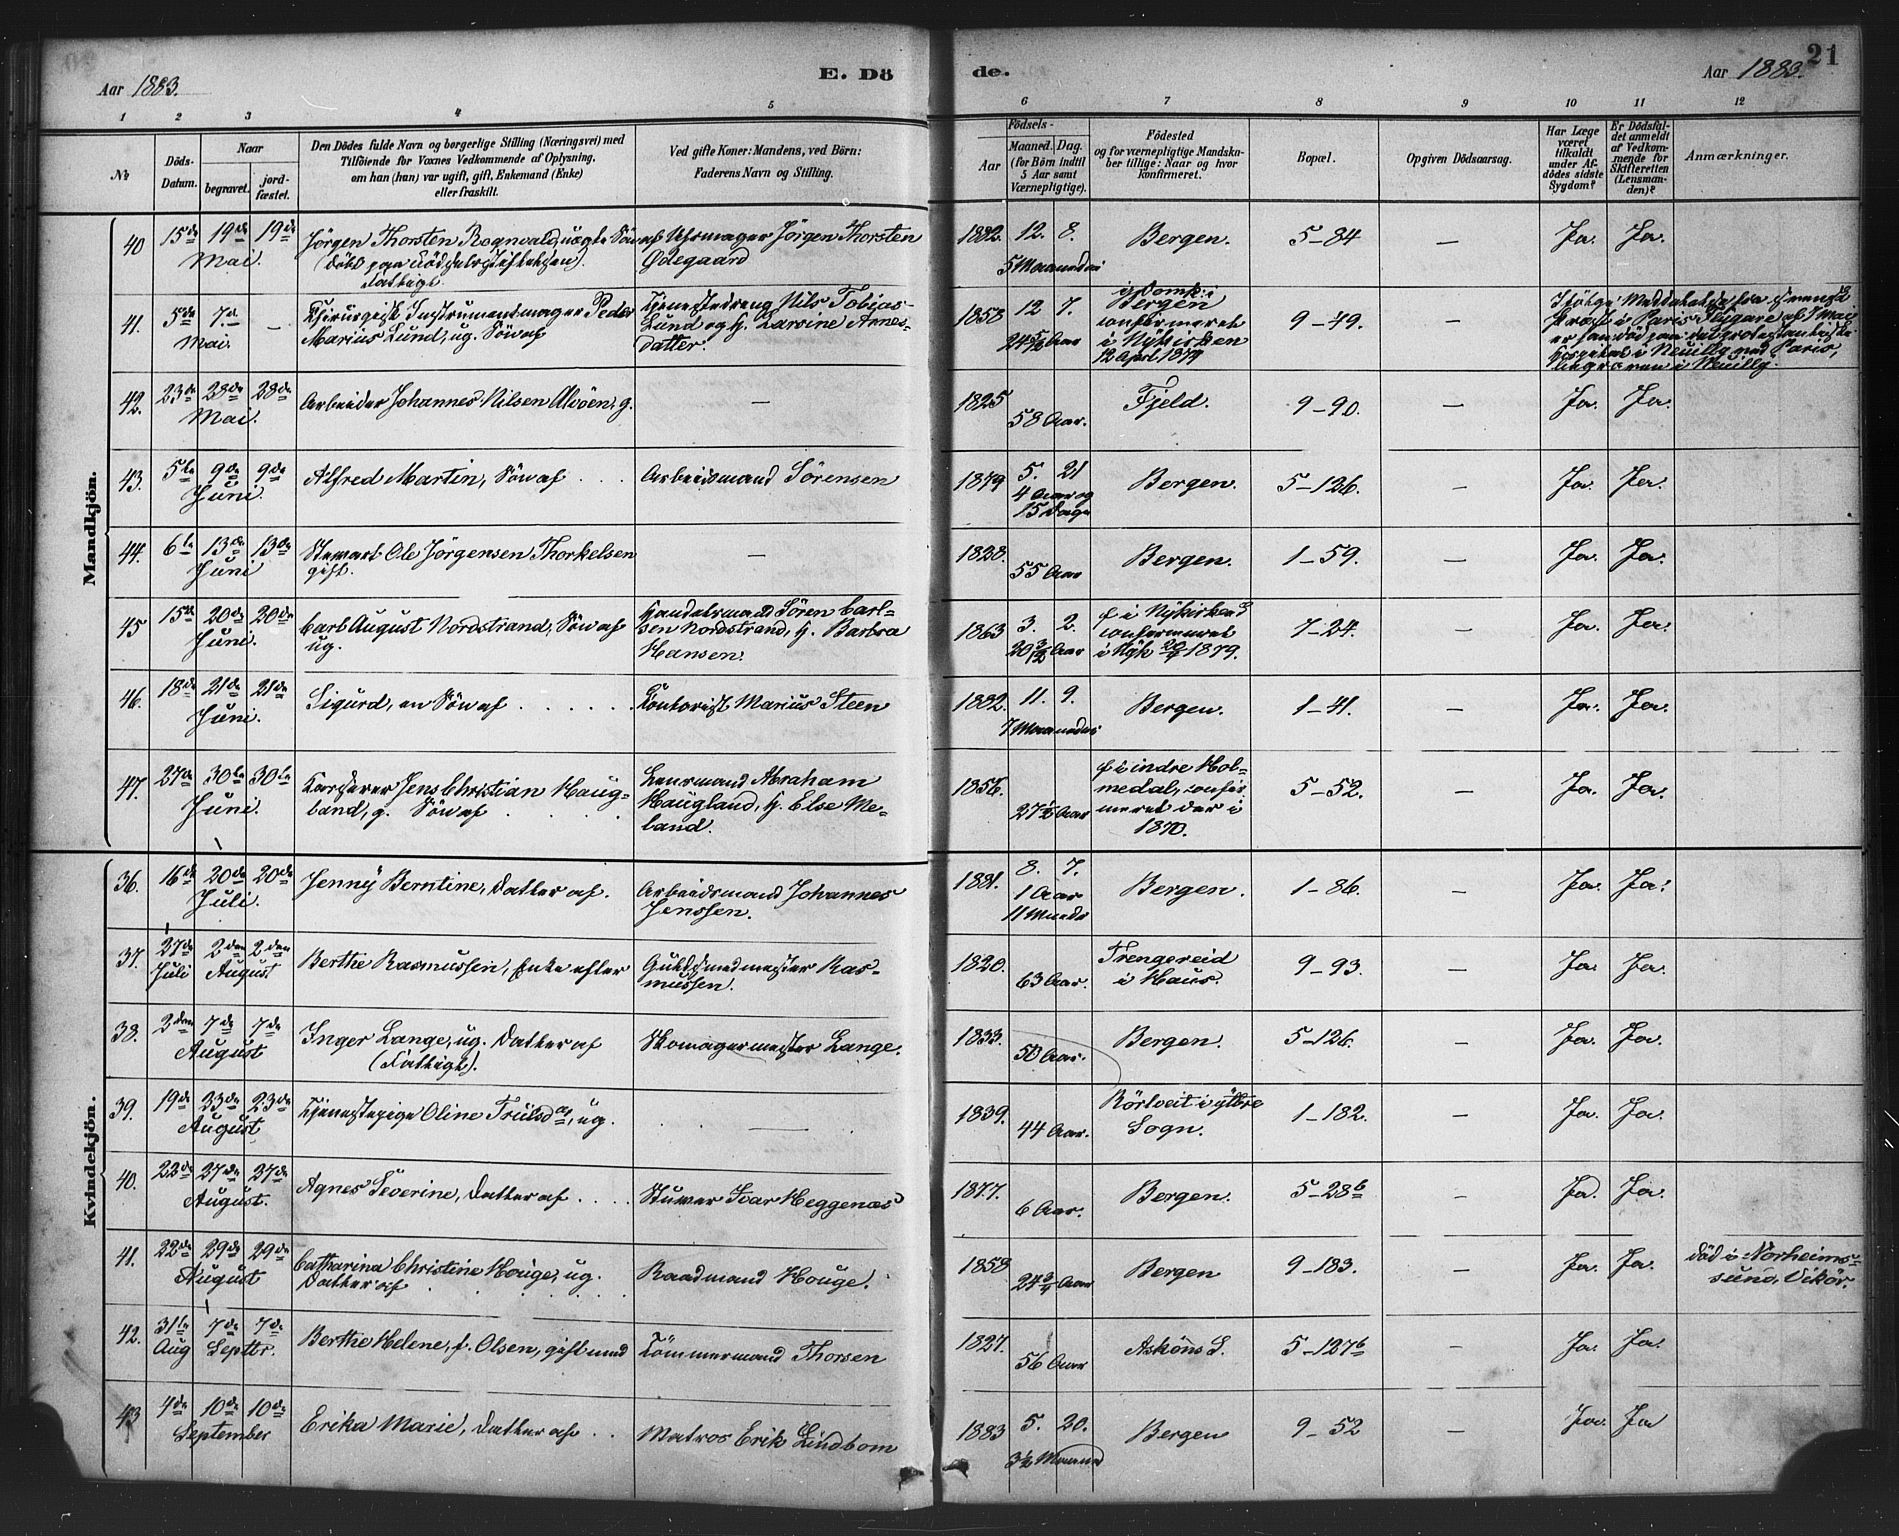 21
Aar 1883.
E. Dö
de.
Aar 1883.
1 2 3 4 5
6 7 8 9 10 11 12
No
Döds-
Datum.
Naar
begravet.
jord-
fæstet.
Den Dödes fulde Navn og borgerlige Stilling (Næringsvei) med
Tilföiende for Voxnes Vedkommende af Oplysning,
om han (hun) var ugift, gift, Enkemand (Enke)
eller fraskilt.
Ved gifte Koner: Mandens, ved Börn:
Faderens Navn og Stilling.
Födsels-
Aar
Maaned. Dag.
(for Börn indtil
5 Aar samt
Værnepligtige).
Födested
og for værnepligtige Mandska-
ber tillige: Naar og hvor
konfirmeret.
Bopæl.
Opgiven Dödsaarsag.
Har Læge
været
tilkaldt
under Af-
dödes sidste
Sygdom?
Er Dödsfal-
det anmeldt
af Vedkom-
mende for
Skifteretten
(Lensman-
den)?
Anmærkninger.
Mandkjön.
40 15de 19de 19de Jörgen Thorsten Rognvald, uægte Sön af Uhrmager Jörgen Thorsten 1882. 12. 8. Bergen. 5-84 — Ja. Ja.
Mai. (död paa Födselsstiftelsen). Ödegaard 5 Maaneder
Fattigt.
41. 5te 7de — Chirurgisk Instrumentmager Peder Tjenestedreng Nils Tobias- 1858 12 7. Bergen 9-49.
Mai. Marius Lund, ug. Sön af Lund og H. Larsine Arnes- 24 5/12 Aar confirmeret
datter. i Nykirken
12 April 1874
Ifölge Meddelelse fra svensk
Præst i Paris Flygare af 9 Mai
er han död paa det protestantiske
Hospital i Neuilly ved Paris,
begraven i Neuilly.
42. 23de 28de 28de Arbeider Johannes Nilsen Alvöen, g. — 1825 Fjeld. 9-90. — Ja. Ja.
Mai. 58 Aar.
43. 5te 9de 9de Alfred Martin, Sön af . . . Arbeidsmand Sörensen 1879 5. 21 Bergen. 5-126. — Ja. Ja.
Juni. 4 Aar og
15 Dage
44. 6te 13de 13de Stewart Ole Jörgensen Thorkelsen — 1828. Bergen. 1-59. — Ja. Ja.
Juni gift. 55 Aar
45 15de 20de 20de Carl August Nordstrand, Sön af Handelsmand Sören Carl- 1863 3. 2. f i Nykirken 7-24. — Ja. Ja.
Juni. ug. sen Nordstrand, H. Barbra 20 3/12 Aar confirmeret
Hansen. i Nyk 20/4 1879.
46. 18de 21de 21de Sigurd, en Sön af . . . . . . Kontorist Marius Steen 1882. 11. 9. Bergen. 1-41. — Ja. Ja.
Juni. 7 Maaneder
47. 27de 30te 30te Jens Christian Haug- Lensmand Abraham 1856. f i indre Hol- 5-52. — Ja. Ja.
Juni. land, g. Sön af . . . . Haugland, H. Else Me- 27 1/2 Aar medal, confir-
land. meret der i
1870.
Kvindekjön.
36. 16de 20de 20de Jenny Berntine, Datter af. Arbeidsmand Johannes 1881. 8. 7. Bergen. 1-86. — Ja. Ja.
Juli. Jenssen. 1 Aar
11 Mdr
37. 27de 2den 2den Berthe Rasmussen, Enke efter Guldsmedmester Ras- 1820. Trengereid 9-93. — Ja. Ja.
Juli August mussen. 63 Aar. i Haus.
38. 2den 7de 7de Inger Lange, ug. Datter af Skomagermester Lange. 1833. Bergen. 5-126. — Ja. Ja.
August (Fattigt). 50 Aar.
39. 19de 23de 23de Tjenestepige Oline Trulsdr, ug. — 1839. i ytre 1-182. — Ja. Ja.
August 44 Aar. Sogn.
40. 22de 27de 27de Agnes Severine, Datter af . . . . Stuver Ivar Heggenæs 1877. Bergen. 5-28b — Ja. Ja.
August. 6 Aar.
41. 22de 29de 29de Catharina Christine Houge, ug. Raadmand Houge. 1858 Bergen 9-183. — Ja. Ja. död i Norheims-
August Datter af 24 3/4 Aar sund, Vikör.
42. 31te 7de 7de Berthe Helene, f. Olsen, gift med Tömmermand Thorsen 1827. Asköens S. 5-127b — Ja. Ja.
Aug Septbr. 56 Aar
43 4de 10de 10de Erika Marie, Datter af . . Matros Erik Lindbom 1883 5. 20. Bergen 9-52 — Ja. Ja
September 3 1/2 Maaned